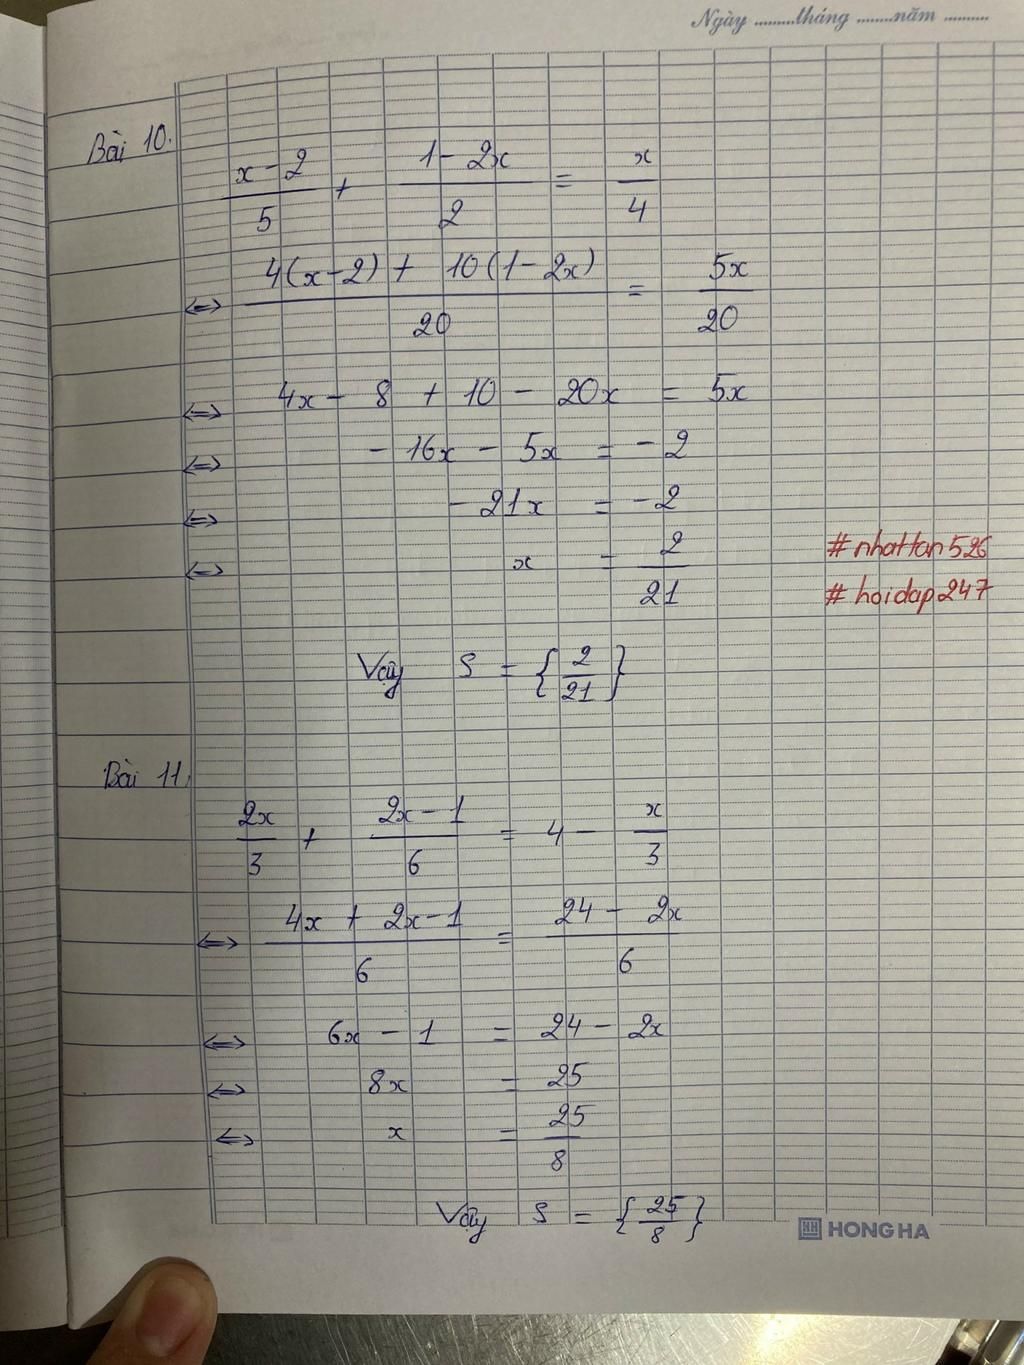 Ngày .........tháng ........năm ..........
Bài 10.
x - 2 / 5 + 1 - 2x / 2 = x / 4
⇔ 4(x-2) + 10(1-2x) / 20 = 5x / 20
⇔ 4x - 8 + 10 - 20x = 5x
⇔ - 16x - 5x = - 2
⇔ - 21x = - 2
⇔ x = 2 / 21
#nhattan526
#hoidap247
Vậy S = { 2 / 21 }
Bài 11.
2x / 3 + 2x - 1 / 6 = 4 - x / 3
⇔ 4x + 2x - 1 / 6 = 24 - 2x / 6
⇔ 6x - 1 = 24 - 2x
⇔ 8x = 25
⇔ x = 25 / 8
Vậy S = { 25 / 8 }
HH HONG HA